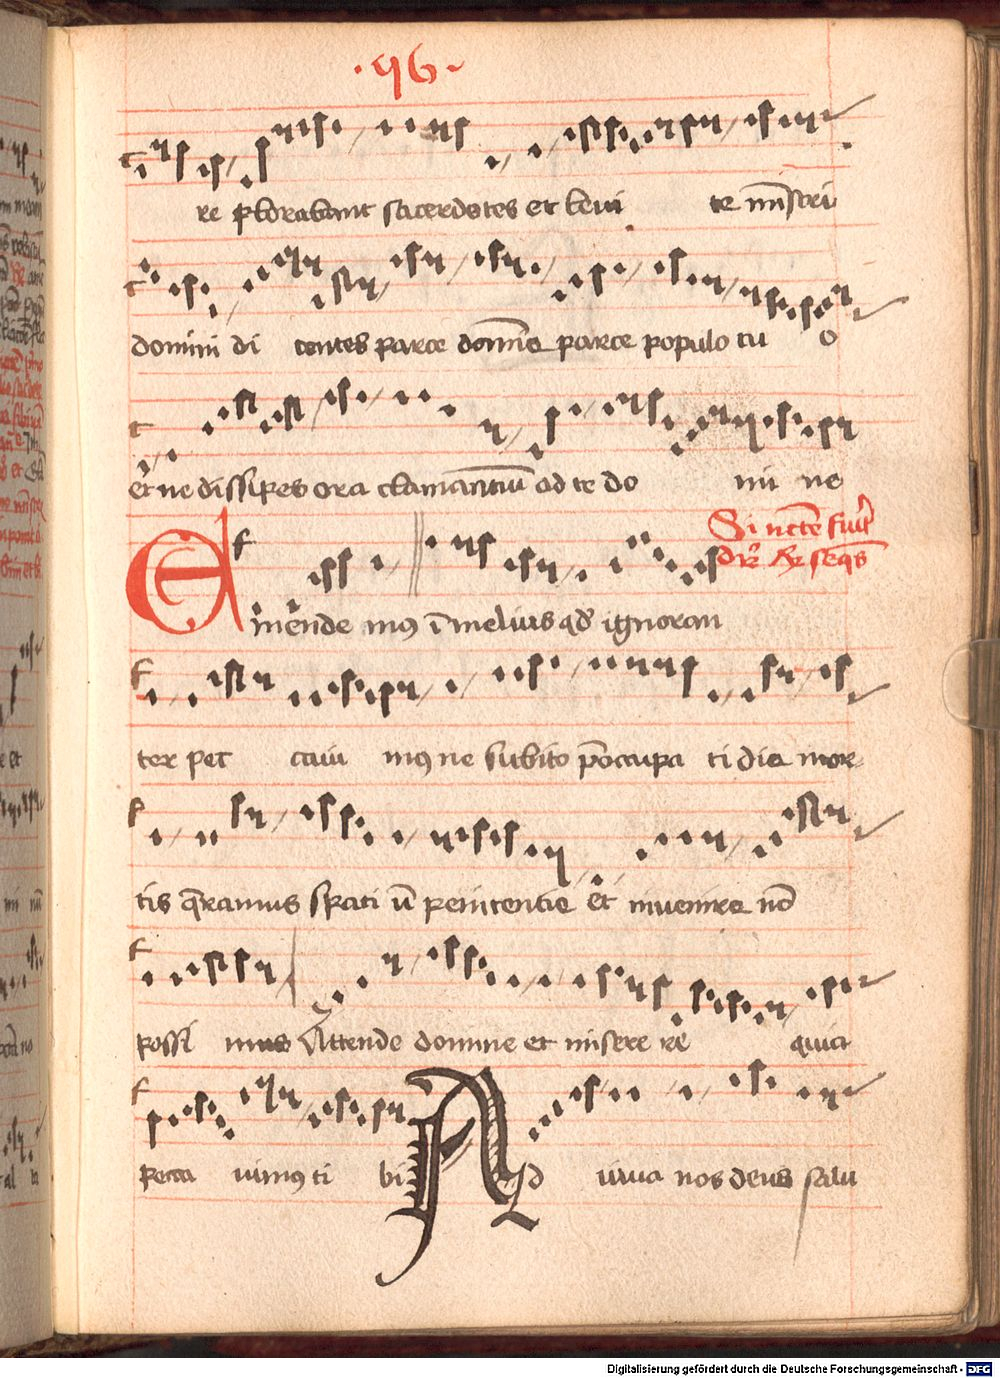 ·96·
re plorabant sacerdotes et leui te mīstri
domini di centes parce domīe parce populo tu o
et ne dissipes ora clamantiū ad te do mi ne
Si nc̄te fuīt
dr̄ R seqs̄
Emende mꝰ ī melius qd̓ ignoran
ter pec caui mꝰ ne subito p̄occupa ti die mor
tis q̄ramus spati ū penitencie et inuenire nō
possi mus Attende domine et misere re quia
pecca uimꝰ ti bi Ad iuua nos deus salu
Digitalisierung gefördert durch die Deutsche Forschungsgemeinschaft - DFG